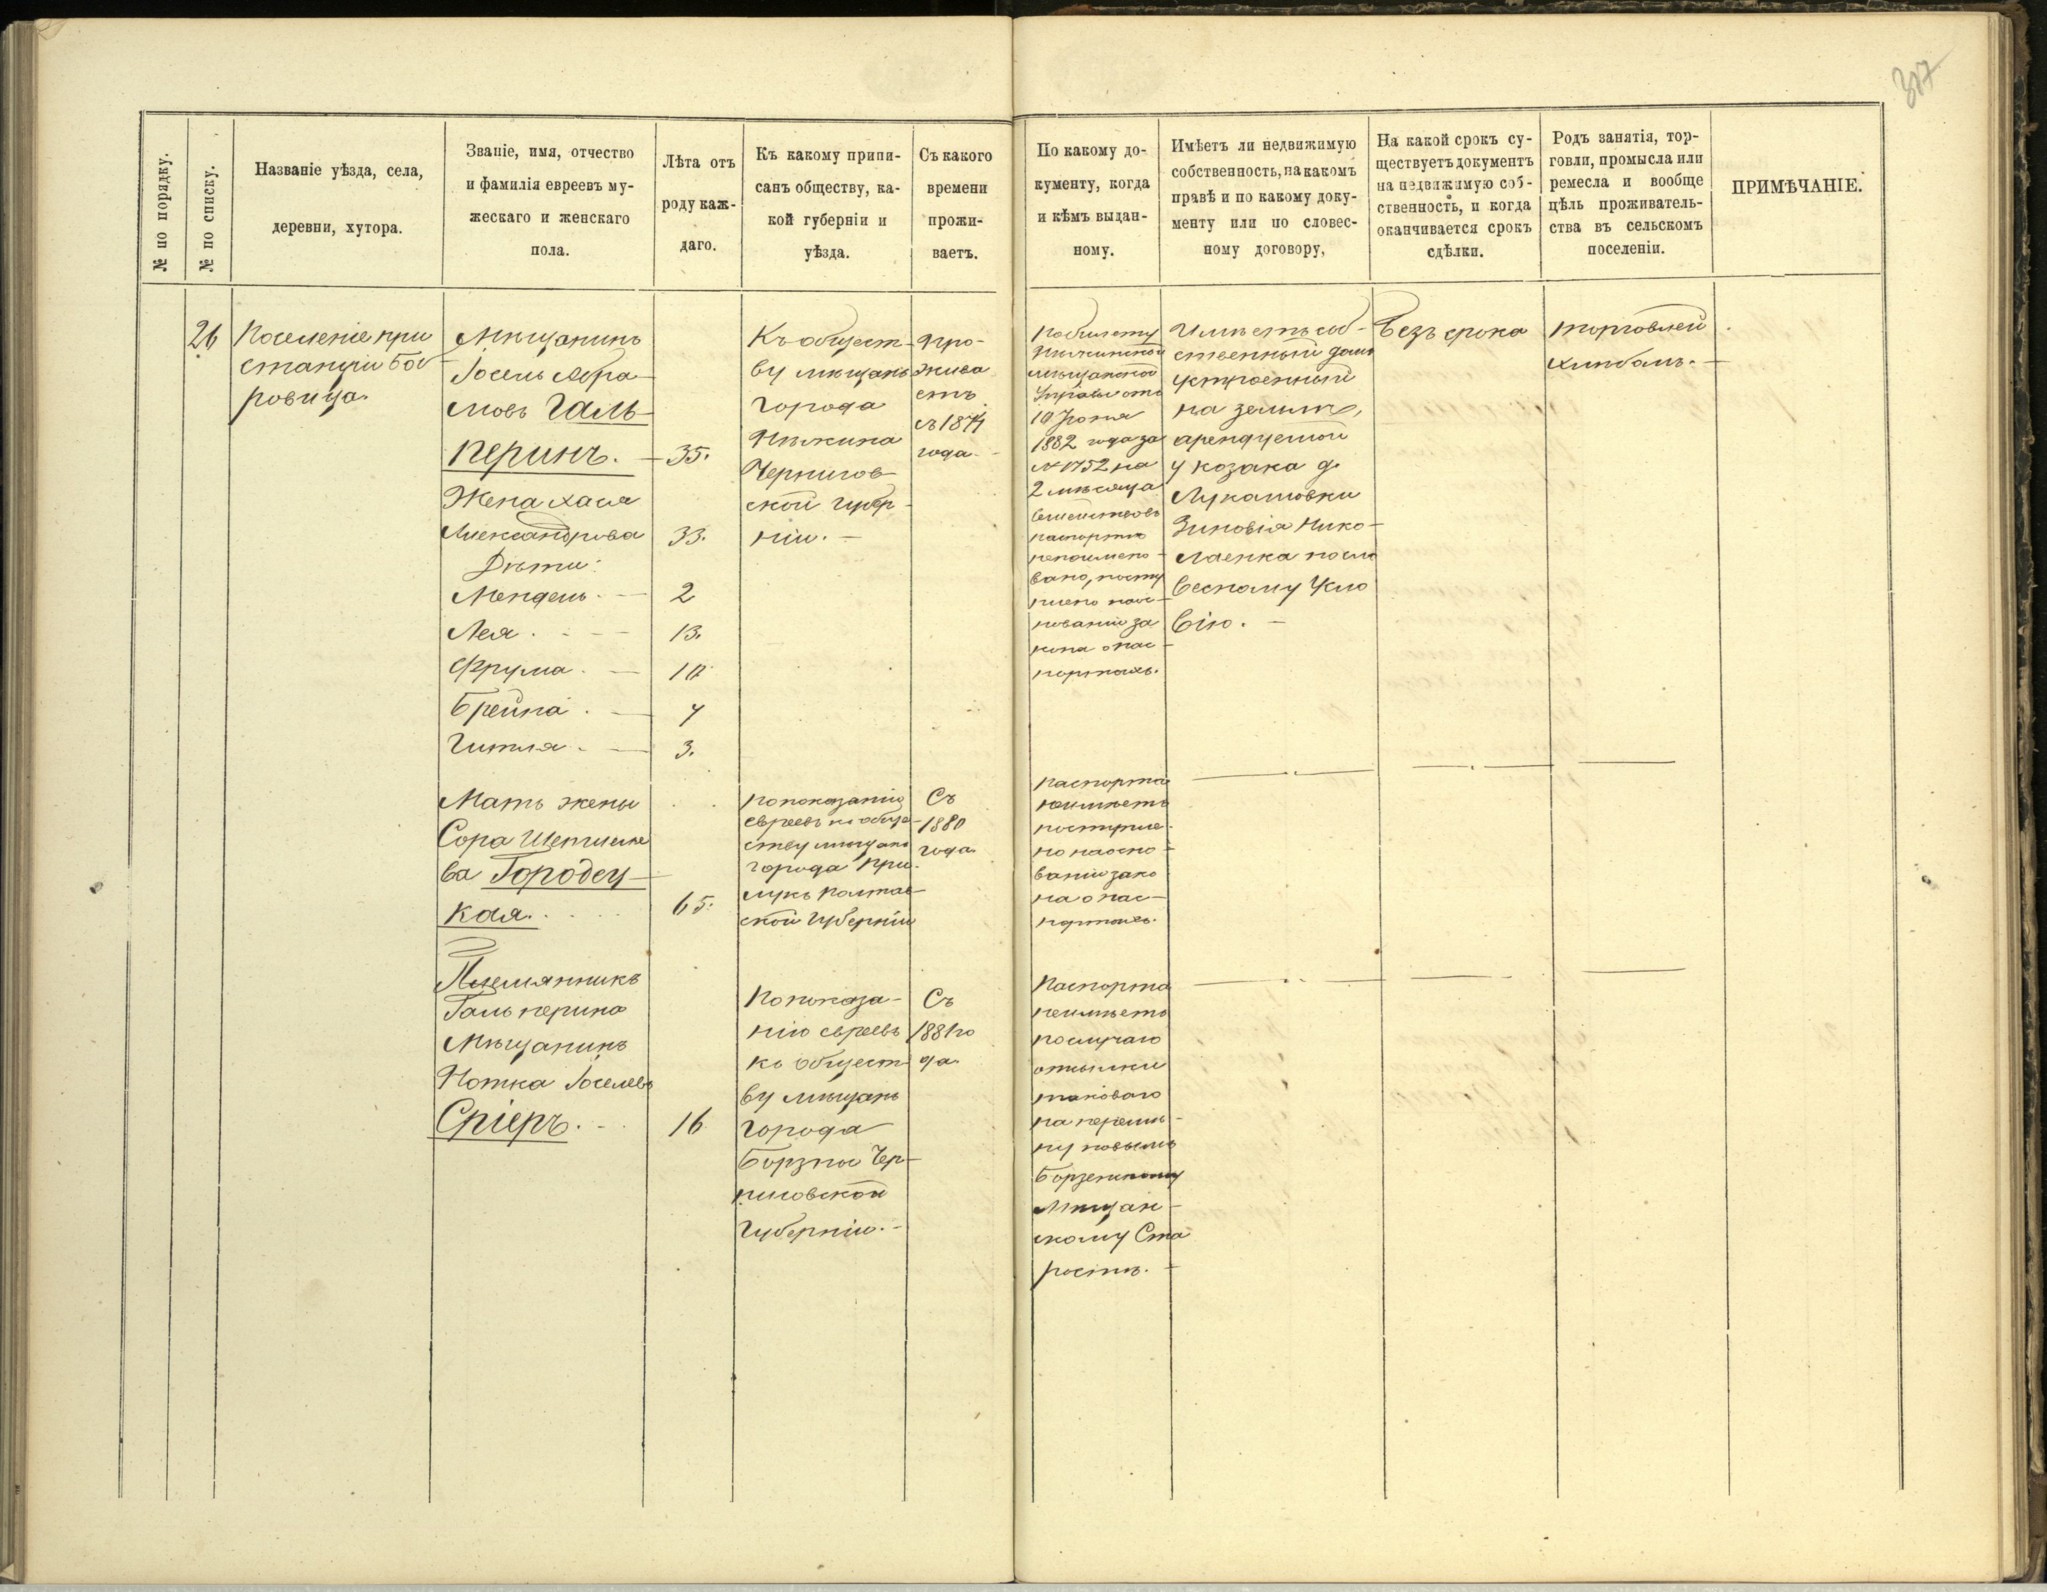 317
№ по порядку.
№ по списку.
Названіе уѣзда, села,
деревни, хутора.
Званіе, имя, отчество
и фамилія евреевъ му-
жескаго и женскаго
пола.
Лѣта отъ
роду каж-
даго.
Къ какому припи-
санъ обществу, ка-
кой губерніи и
уѣзда.
Съ какого
времени
прожи-
ваетъ.
По какому до-
кументу, когда
и кѣмъ выдан-
ному.
Имѣетъ ли недвижимую
собственность, на какомъ
правѣ и по какому доку-
менту или по словес-
ному договору,
На какой срокъ су-
ществуетъ документъ
на недвижимую соб-
ственность, и когда
оканчивается срокъ
сдѣлки.
Родъ занятія, тор-
говли, промысла или
ремесла и вообще
цѣль проживатель-
ства въ сельскомъ
поселеніи.
ПРИМѢЧАНІЕ.
26
Поселеніе при
станціи Боб
ровица.
Мѣщанинъ
Іосель Абра-
мовъ Галь-
перинъ. — 35.
Жена Хася
Александрова 33.
Дѣти:
Мендель. — 2
Лея. - — 13.
Фрума. — 10
Брейна. — 7
Гитля. — 3.
Къ общест-
ву мѣщанъ
города
Нѣжина
Чернигов-
ской губер-
ніи. —
Про-
жива
етъ
съ 1874
года. -
По билету
Нѣжинской
Мѣщанской
Управы отъ
10 Іюня
1882 года за
№ 1752 на
2 мѣсяца
семейство въ
паспортѣ
непоимено-
вано, посту
плено на ос-
нованіи за
кона о пас-
портахъ.
Имѣетъ соб-
ственный домъ
устроенный
на землѣ,
арендуемой
у козака д.
Лукашовки
Зиновія Нико-
лаенка по сло
весному усло
вію. —
Безъ срока
торговлей
хлѣбомъ. —
Мать жены
Сора Шепшеле
ва Городец-
кая. . . . 65.
по показанію
евреевъ къ обще-
ству мѣщанъ
города При-
лукъ Полтав-
ской Губерніи
Съ
1880
года.
Паспорта
неимѣетъ
поступле-
но на осно-
ваніи зако
на о пас-
портахъ.
Племянникъ
Гальперина
Мѣщанинъ
Нотка Іоселевъ
Спіеръ. - . 16
По показа-
нію евреевъ
къ общест-
ву мѣщанъ
города
Борзны Чер-
ниговской
Губерніи. -
Съ
1881 го
да.
Паспорта
неимѣетъ
по случаю
отсылки
таковаго
на перемѣ-
ну новымъ
Борзенскому
Мѣщан-
скому Ста
ростѣ. —